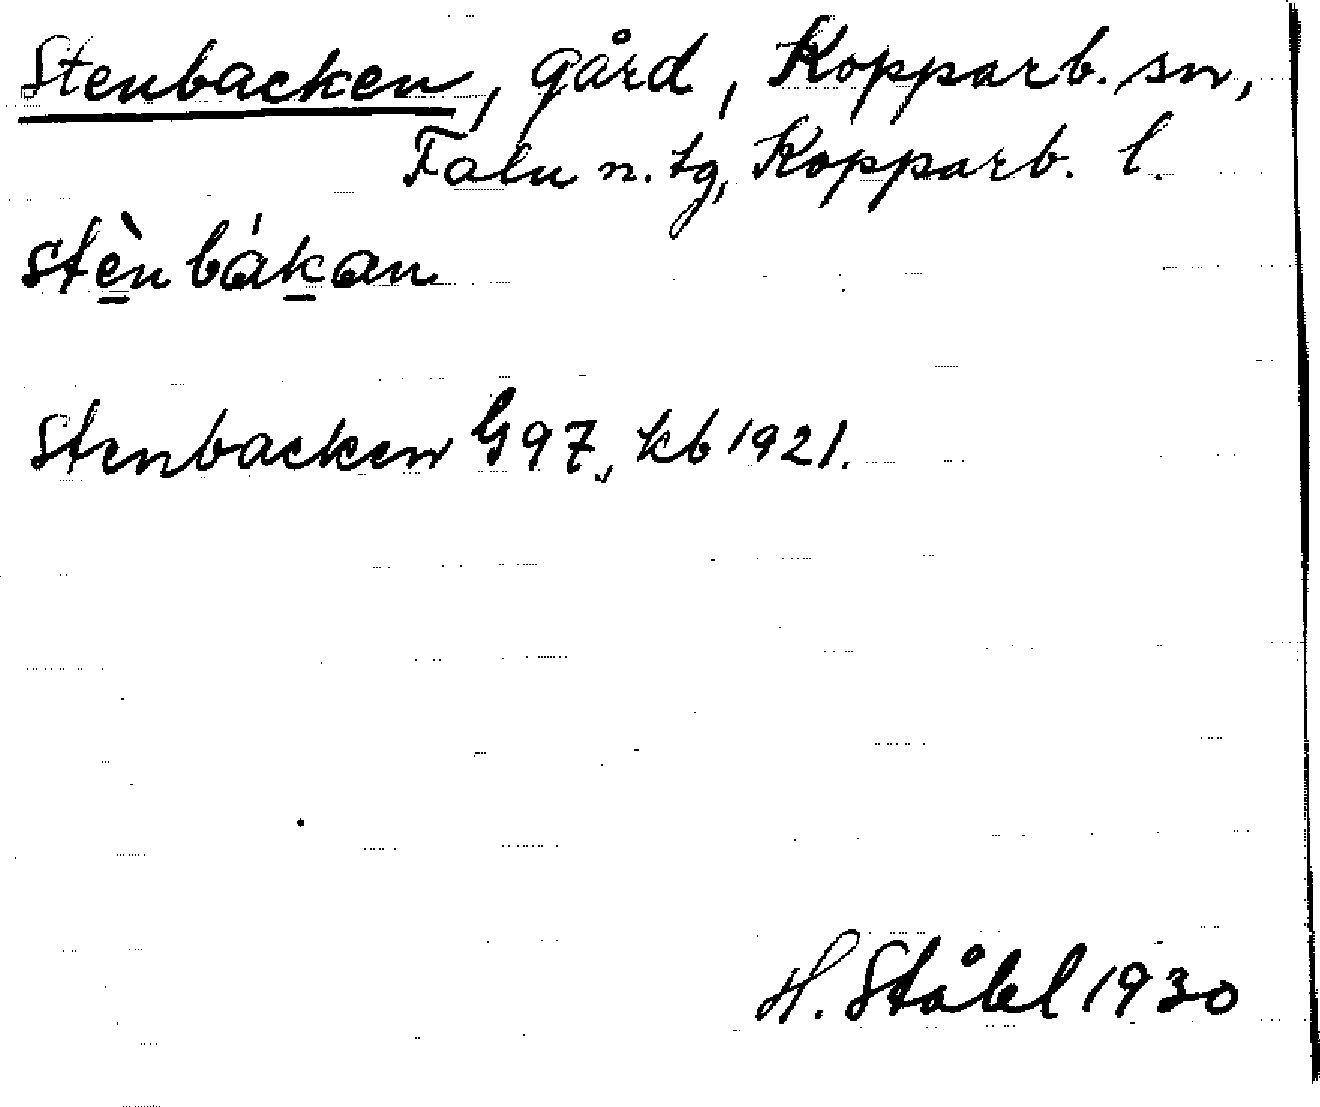 Stenbacken, gård, Kopparb. sn,
Falu n. tg, Kopparb. l.
stè̱nbáḵan
Stenbacken G97, kb 1921.
H. Ståhl 1930